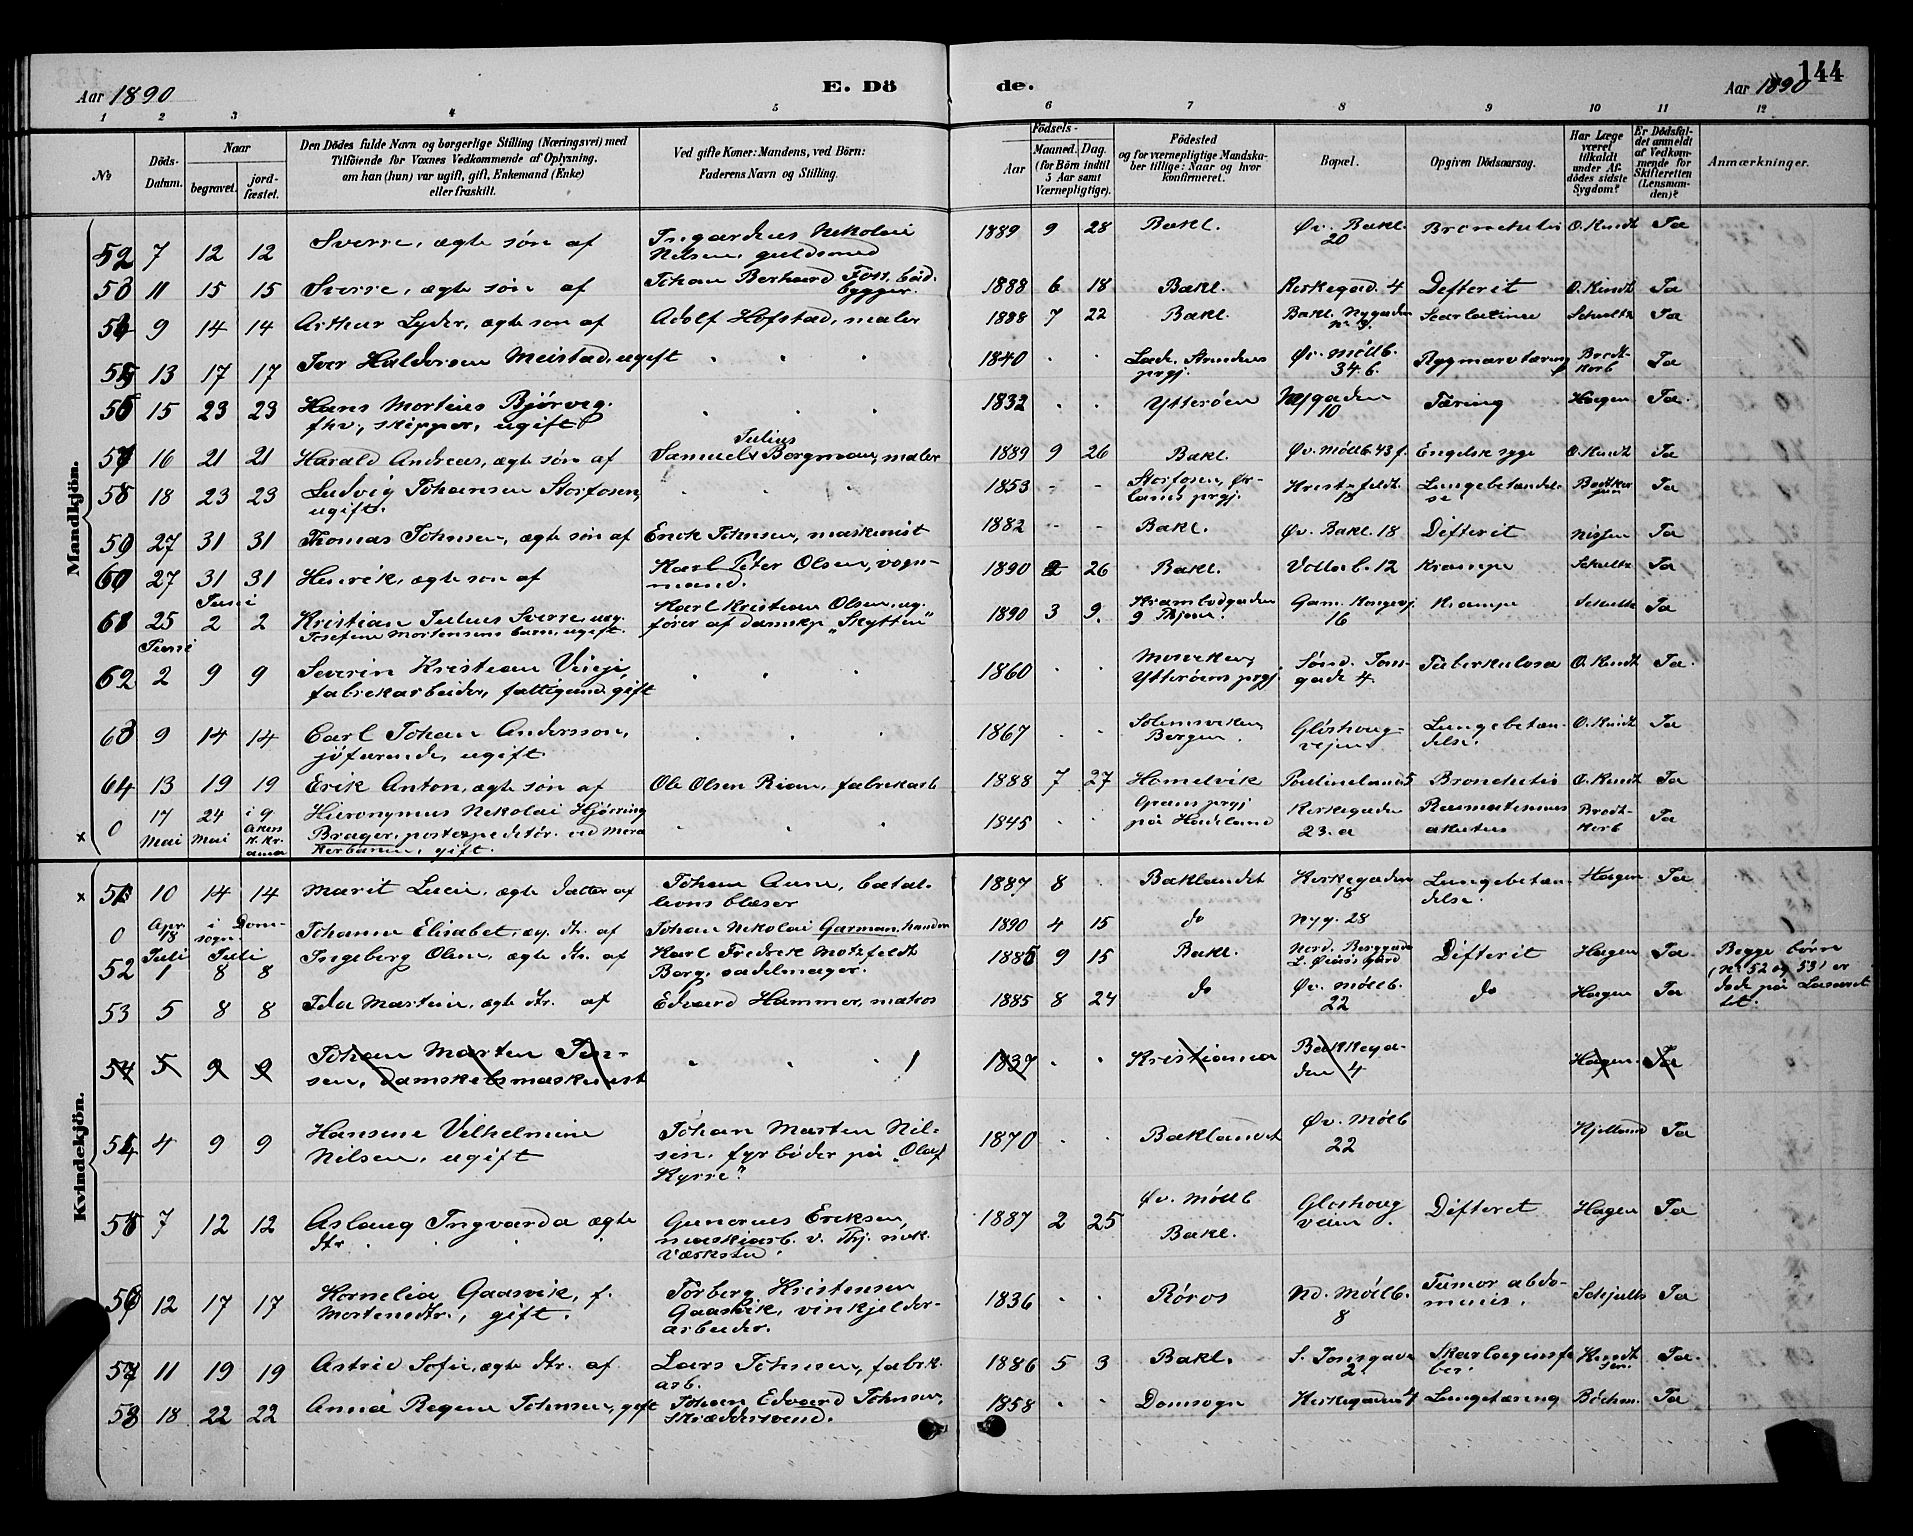 144
Aar 1890
E. Dö
de.
Aar 1890
1 2 3 4 5 6 7 8 9 10 11 12
№
Döds-
Datum.
Naar
begravet.
jord-
fæstet.
Den Dödes fulde Navn og borgerlige Stilling (Næringsvei) med
Tilföiende for Voxnes Vedkommende af Oplysning,
om han (hun) var ugift, gift, Enkemand (Enke)
eller fraskilt.
Ved gifte Koner: Mandens, ved Börn:
Faderens Navn og Stilling.
Födsels-
Aar
Maaned. Dag.
(for Börn indtil
5 Aar samt
Værnepligtige).
Födested
og for værnepligtige Mandska-
ber tillige: Naar og hvor
konfirmeret.
Bopæl.
Opgiven Dödsaarsag.
Har Læge
været
tilkaldt
under Af-
dödes sidste
Sygdom?
Er Dödsfal-
det anmeldt
af Vedkom-
mende for
Skifteretten
(Lensman-
den)?
Anmærkninger.
Mandkjön.
52 7 12 12 Sverre, ægte søn af Nikolai
Nilsen, guldsmed 1889 9 28 Bakl. Øv. Bakl.
20 O. Kindt Ja
53 11 15 15 Sverre, ægte søn af Johan Berhard Foss, båd-
bygger. 1888 6 18 Bakl. Kirkegad. 4 Difterit O. Kindt Ja
54 9 14 14 Arthur Lyder, ægte søn af Adolf Hofstad, maler 1888 7 22 Bakl. Bakl. Nygaden Scarlatina Schultz Ja
55 13 17 17 Iver Haldorsen Meistad, ugift 1840 Lade, Strindens
prgj. Øv. Møllb.
34.b. Rygmarvtæring Brodt-
korb Ja
56 15 23 23 Hans Mortius Bjørvig.
fhv. skipper, ugift 1832 Ytterøen Nygaden
10 Tæring Hagen Ja
57 16 21 21 Harald Andreas, ægte søn af Julius
Samuel Borgman, maler 1889 9 26 Bakl. Øv. Møllb. 43 f. Engelsk syge O. Kindt Ja
58 18 23 23 Ludvig Johansen Storfosen,
ugift. 1853 Storfosen, Ør-
lands prgj. Krist-feldt.
18 Lungebetændel-
se Ja
59 27 31 31 Thomas Johnsen, ægte søn af Erick Johnsen, maskinist 1882 Bakl. Øv. Bakl. 18 Difterit Nissen Ja
60 27 31 31 Henrik, ægte søn af Karl Peter Olsen, vogn-
mand. 1890 2 26 Bakl. Vollab. 12 Krampe Schultz Ja
Juni
61 25 2 2 Kristian Julius Sverre, ueg.
Josefine Mortensens barn, ugift. Karl Kristian Olsen, ug.
fører af damskp „Skytten” 1890 3 9. Krambodgaden
9 Thjem. Gam. Kongevj.
16 Krampe Schultz Ja
Juni
62 2 9 9 Severin Kristian Vinje,
fabrikarbeider, fattigund. gift 1860 Mosviken,
Ytterøens prgj. Sønd. Jons-
gade 4. Tuberkulosa O. Kindt Ja.
63 9 14 14 Carl Johan Andersson,
sjøfarende, ugift 1867 Solemsviken,
Bergen. Gløshaug-
vejen Lungebetæn-
delse. O. Kindt Ja
64 13 19 19 Erik Anton, ægte søn af Ole Olsen Rian, fabrikarb 1888 7 27 Homelvik Paulinelund 5 Bronchitis O. Kindt Ja
x 0 17
Mai 24
Mai i 9
Akers
k. Kr.
ania Hieronymus Nikolai Hjøring
Brager, postexpeditør ved Mera
kerbanen, gift. 1845 Grans prgj
på Hadeland Kirkegaden
23.a Brodt-
korb Ja
Kvindekjön.
x 51 10 14 14 Marit Lucie, ægte datter af Johan Aune, batal-
lions blæser 1887 8 Baklandet Kirkegaden
18 Lungebetæn-
delse. Hagen Ja
0 Apr.
18 i Dom-
sogn. Johanne Elisabet, æg. dtr. af Johan Nikolai Garman, handm 1890 4 15 do Nyg. 28
Juli Juli
52 1 8 8 Ingeborg Oline, ægte dtr. af Karl Fredrik Motzfeldt
Borg, sadelmager. 1885 9 15 Bakl. Nerd. Berggade Difterit Hagen Ja Begge børn
(Nr 52 og 53) er
døde på Lasaret
tet.
53 5 8 8 Ida Martine, ægte dtr. af Edvard Hammer, matros 1885 8 24 do Øv. Møllb.
22 do Hagen Ja
54 5 9 9 Johan Morten Jen-
sen, Damskibsmaskinist 1837 Kristiania Bakkega-
den 4 Hagen Ja
54 4 9 9 Hansine Vilhelmine
Nilsen, ugift Johan Morten Nil-
sen, fyrbøder på „Olaf
Kyrre”. 1870 Baklandet Øv. Møllb
22 Kjelland Ja
55 7 12 12 Aslaug Ingvarda ægte
dtr. Gunerius Eriksen,
maskinarb. v. Thj. mek.
Værksted. 1887 2 25 Øv. Møllb
Bakl. Gløshaug
veien Difterit Hagen Ja
56 12 17 17 Kornelia Gaasvik, f.
Mortensdtr., gift. Torberg Kristensen
Gaasvik, vinkjelder-
arbeider. 1836 Røros Nd. Møllb.
8 Tumor abdo-
minis. Schjults Ja
57 11 19 19 Astrid Sofie, ægte dtr. af Lars Johnsen, fabrik
arb. 1886 5 3 Bakl. S. Jonsgade
2 Skarlagensfe
ber Kindt
sen. Ja
58 18 22 22 Anna Regine Johnsen, gift Johan Edvard Johnsen,
skræddersvend. 1858 Domsogn Kirkegaden 4 Lungetæring Bøckm. Ja